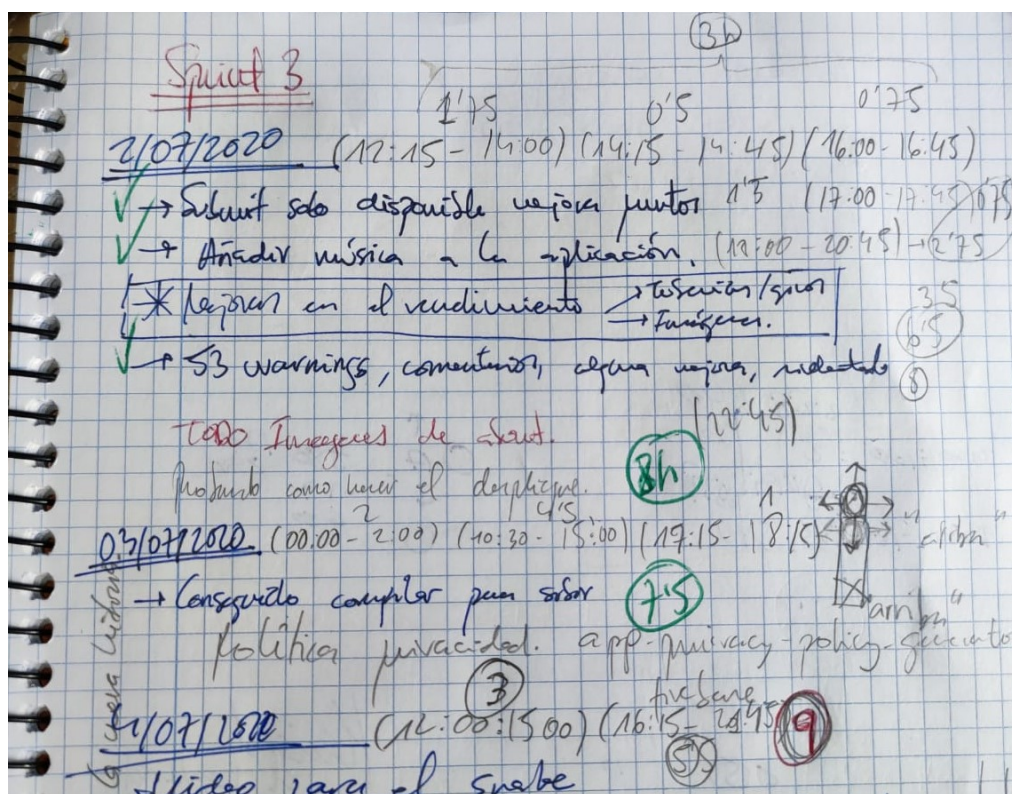 3h
Sprint 3
1'75 0'5 0'75
2/07/2020 (12:15 - 14:00) (14:15 - 14:45) (16:00 - 16:45)
→ Submit solo disponible mejora puntos 1'5 (17:00 - 17:45) 0'75
→ Añadir música a la aplicación. (18:00 - 20:45) → 2'75
* Mejoras en el rendimiento → /giros
→ Imágenes.
3'5
6'5
→ 53 warnings, comentarios, alguna mejora, indentado
8
TODO Imágenes de about. (22:45)
Probando como hacer el despliegue. 8h
2 4'5 1
03/07/2020 (00:00 - 2:00) (10:30 - 15:00) (17:15 - 18:15) "arriba"
→ Conseguido compilar para subir 7'5
"arriba"
Política privacidad. app-privacy-policy-generato
3 firebase
4/07/2020 (12:00:15:00) (16:15 - 21:45) 9
5'5
Video para el